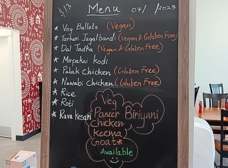 3/13 Menu 07/ /2023
* Veg Bullets (Vegan)
* Tarkari Jagalbandi (Vegan & Gluten Free)
* Dal Tadka (Vegan & Gluten Free)
* Mirpakai kodi
* Palak Chicken (Gluten Free)
* Nawabi Chicken (Gluten Free)
* Rice
* Roti
* Rava Kesari
Veg
Paneer
Chicken
Keema
Goat
Biriyani
Available